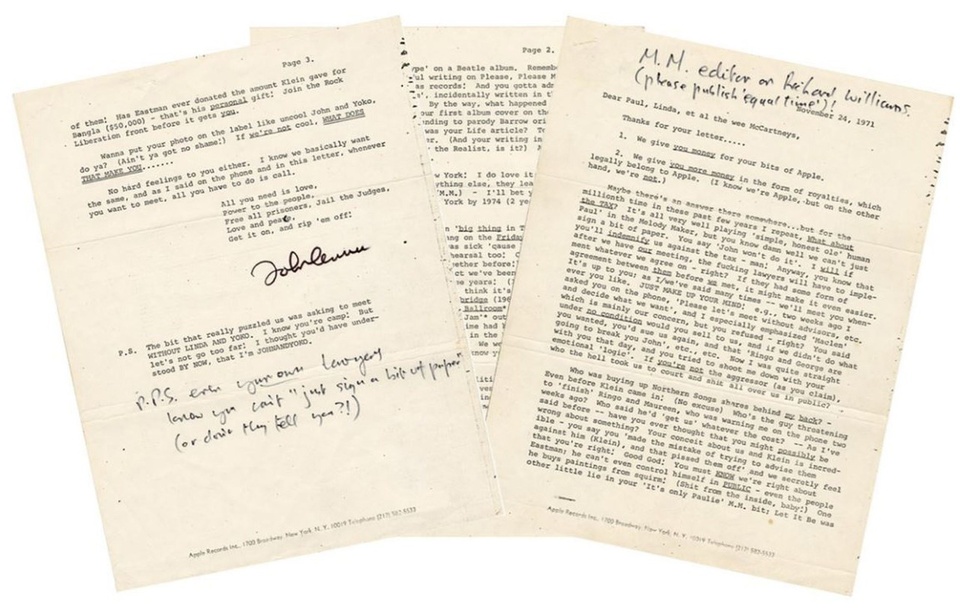 Page 3.
of them! Has Eastman ever donated the amount Klein gave for
Bangla ($50,000) - that's his personal gift! Join the Rock
Liberation front before it gets you.
Wanna put your photo on the label like uncool John and Yoko,
do ya? (Ain't ya got no shame!) If we're not cool, WHAT DOES
THAT MAKE YOU.......
No hard feelings to you either. I know we basically want
the same, and as I said on the phone and in this letter, whenever
you want to meet, all you have to do is call.
All you need is love,
Power to the people,
Free all prisoners, Jail the Judges,
Love and peace,
Get it on, and rip 'em off!
John Lennon
P.S. The bit that really puzzled us was asking to meet
WITHOUT LINDA AND YOKO. I know you're camp! But
let's not go too far! I thought you'd have under-
stood BY NOW, that I'm JOHNANDYOKO.
P.P.S. even your own lawyers
know you can't "just sign a bit of paper"
(or don't they tell you?!)
Apple Records Inc., 1700 Broadway, New York, N.Y. 10019 Telephone (212) 582-5533
Page 2.
on a Beatle album. Rememb
ful writing on Please, Please M
as records! And you gotta ad
incidentally written in t
By the way, what happened
our first album cover on the
ending to parody Barrow ori
was your Life article? T
(And your writing in
the Realist, is it?)
w York! I do love it
ything else, they lea
M.M.) - I'll bet y
York by 1974 (2 ye
n 'big thing in T
ng on the Friday
was sick 'cause
ehearsal too! C
gether before!
ct we've been
e years! (I
think it's
bridge (196
Ballroom"
Jam"' out
ime had
We we
know y
M.M. editor or Richard Williams
(please publish 'equal time')!
November 24, 1971
Dear Paul, Linda, et al the wee McCartneys,
Thanks for your letter.....
1. We give you money for your bits of Apple.
2. We give you more money in the form of royalties, which
legally belong to Apple. (I know we're Apple, but on the other
hand, we're not.)
Maybe there's an answer there somewhere...but for the
millionth time in these past few years I repeat, What about
the TAX? It's all very well playing 'simple, honest ole' human
Paul' in the Melody Maker, but you know damn well we can't just
sign a bit of paper. You say 'John won't do it'. I will if
you'll indemnify us against the tax - man! Anyway, you know that
after we have our meeting, the fucking lawyers will have to imple-
ment whatever we agree on - right? If they had some form of
agreement between them before we met, it might make it even easier.
It's up to you; as I/we've said many times - we'll meet you when-
ever you like. JUST MAKE UP YOUR MIND! e.g., two weeks ago I
asked you on the phone, 'Please let's meet without advisors, etc.
and decide what we want', and I especially emphasized 'Maclen',
which is mainly our concern, but you refused - right? You said
under no condition would you sell to us, and if we didn't do what
you wanted, you'd sue us again, and that 'Ringo and George are
going to break you John', etc., etc. Now I was quite straight
with you that day, and you tried to shoot me down with your
emotional 'logic'. If you're not the aggressor (as you claim),
who the hell took us to court and shit all over us in public?
Who was buying up Northern Songs shares behind my back? -
Even before Klein came in! (No excuse) Who's the guy threatening
to 'finish' Ringo and Maureen, who was warning me on the phone two
weeks ago? Who said he'd 'get us' whatever the cost? -- As I've
said before -- have you ever thought that you might possibly be
wrong about something? Your conceit about us and Klein is incred-
ible - you say you 'made the mistake of trying to advise them
against him (Klein), and that pissed them off' and we secretly feel
that you're right! Good God! You must KNOW we're right about
Eastman; he can't even control himself in PUBLIC - even the people
he buys paintings from squirm! (Shit from the inside, baby!) One
other little lie in your 'It's only Paulie' M.M. bit; Let It Be was
Apple Records Inc., 1700 Broadway, New York, N.Y. 10019 Telephone (212) 582-5533